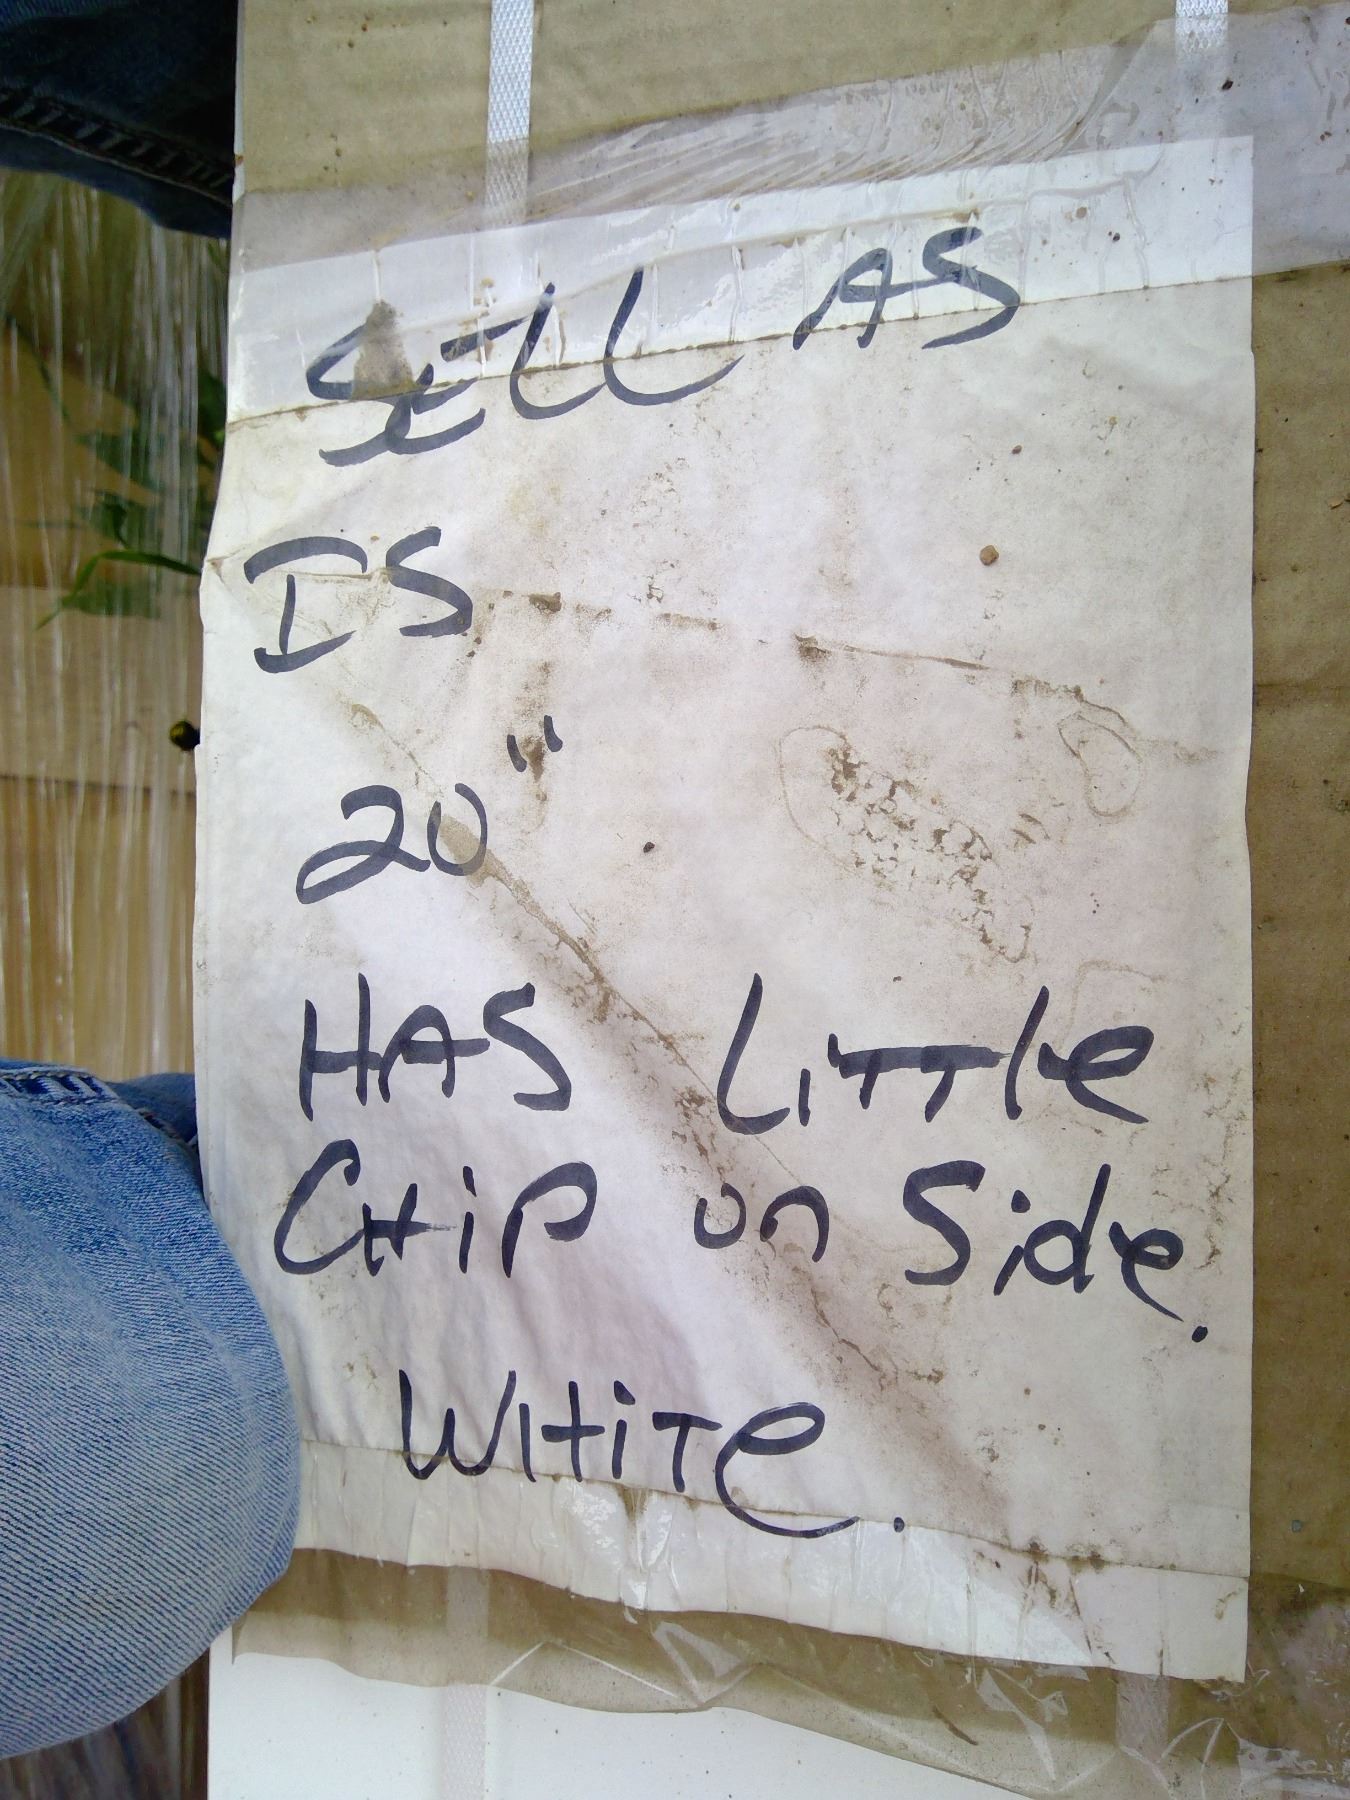 SELL AS
DS
20"
HAS LiTTle
CHiP on Side.
WHiTe.